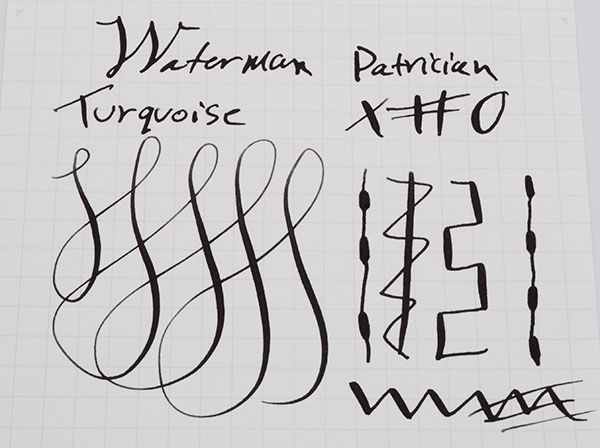 Waterman Patrician
Turquoise x#0